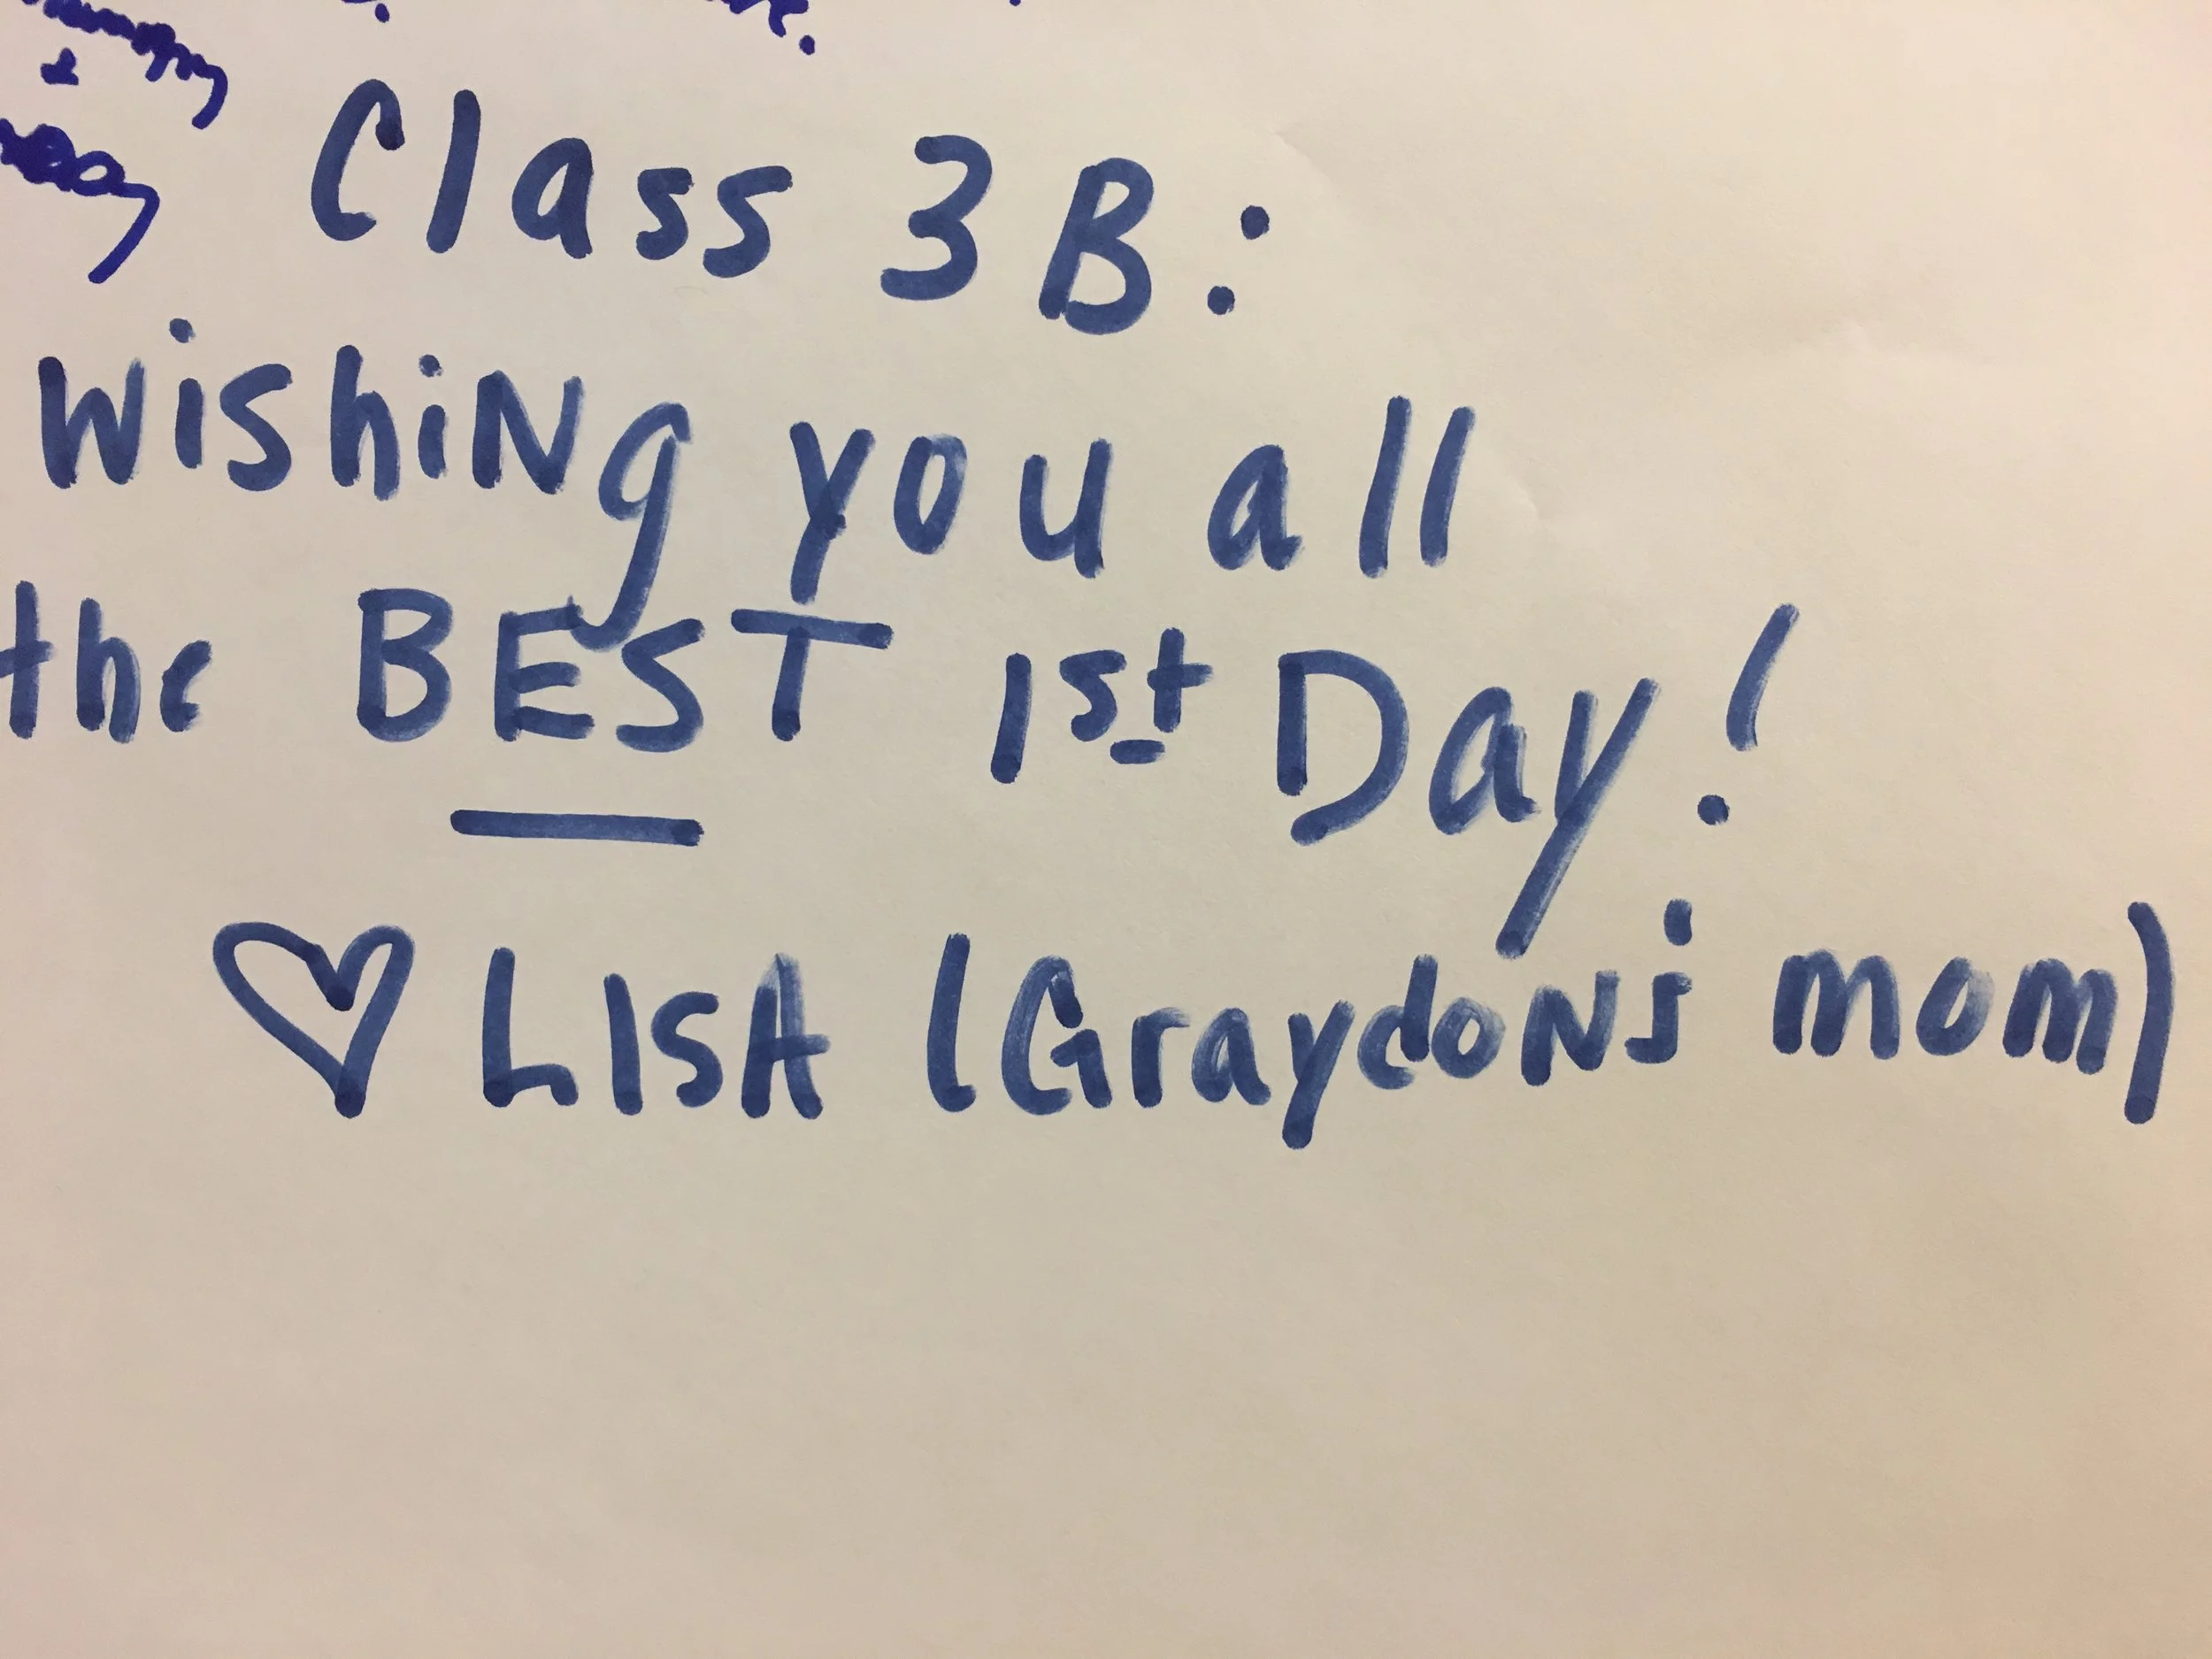 Class 3B:
wishing you all
the BEST 1st Day!
♡ LISA (Graydon's mom)